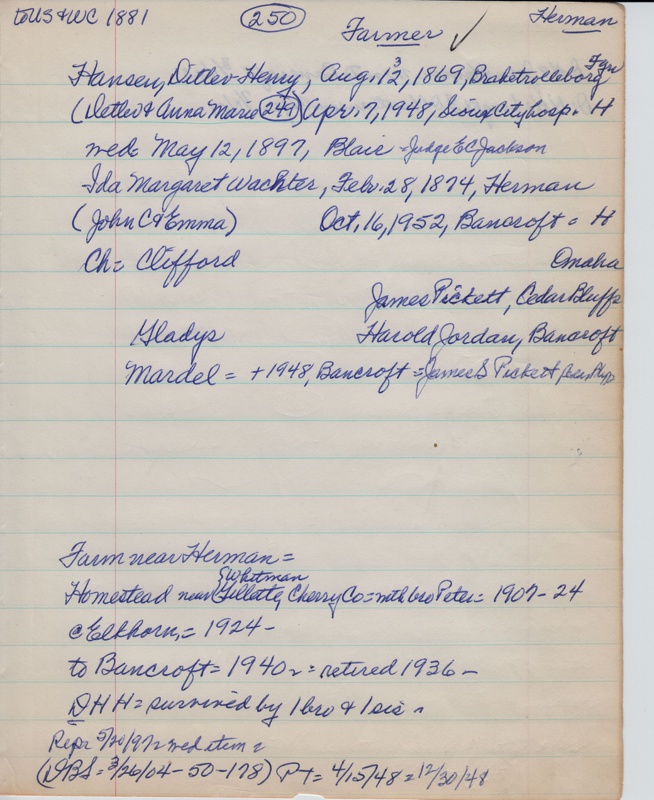 to US & WC 1881 (250) Herman
Farmer ✓
Hansen, Ditlev Henry, Aug. 12, 3 1869, Braketrolleborg Fyn
(Detlev & Anna Marie (249)) Apr. 7, 1948, Sioux City hosp. = H
wed = May 12, 1897, Blair = Judge E C Jackson
Ida Margaret Wachter, Feb. 28, 1874, Herman
(John C & Emma) Oct. 16, 1952, Bancroft = H
Ch = Clifford Omaha
James Pickett, Cedar Bluffs
Gladys Harold Jordan, Bancroft
Mardel = + 1948, Bancroft = James S Pickett
Farm near Herman =
& Whitman
Homestead near Gillette, Cherry Co = with bro Peter = 1907 - 24
@ Elkhorn, = 1924 -
to Bancroft = 1940 = retired 1936 -
DHH = survived by 1 bro & 1 sis
Repr 5/20/97 = wed item =
(DBS = 3/26/04 - 50 - 178) PT = 4/15/48 = 12/30/48